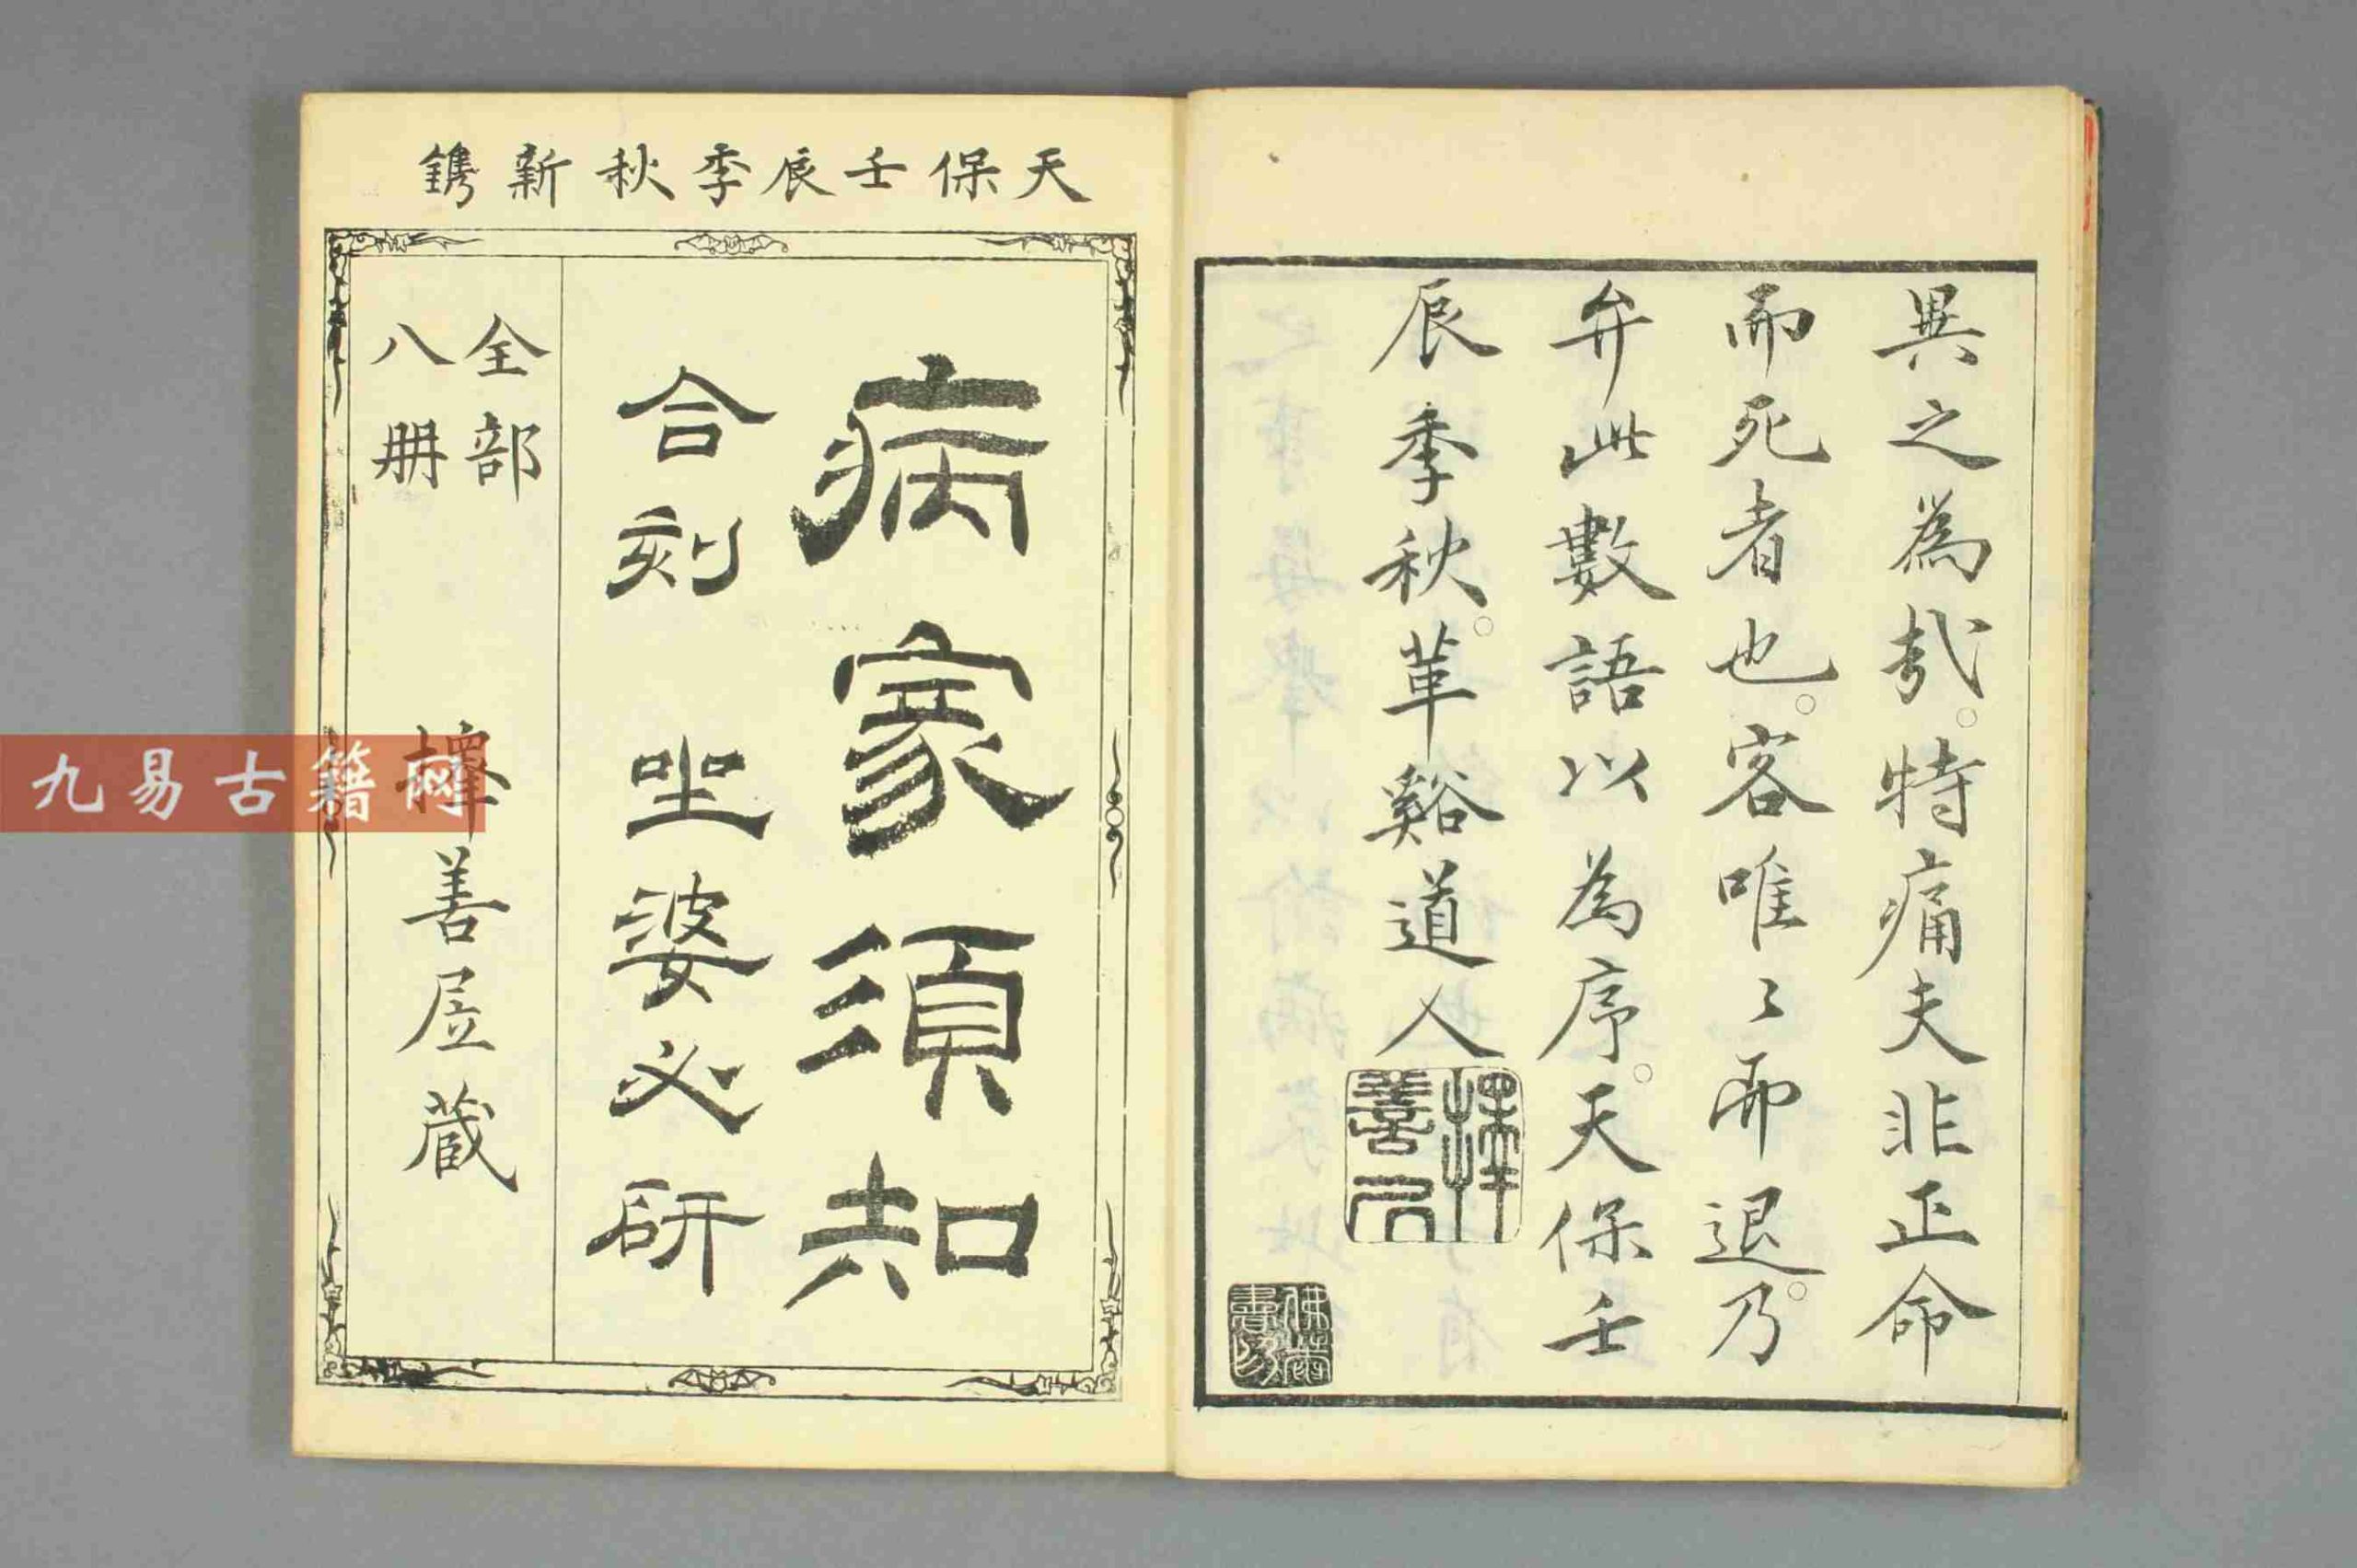 異之為哉。特痛夫非正命
而死者也。客唯〻而退。乃
弁此數語以為序。天保壬
辰季秋。革谿道人
擇善居
天保壬辰季秋新鐫
病家須知
合刻 坐婆必研
全部
八冊
擇善居藏
九易古籍网